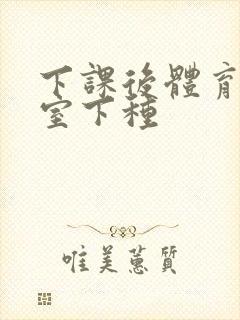 下課後體育
室下種
唯美蕙質